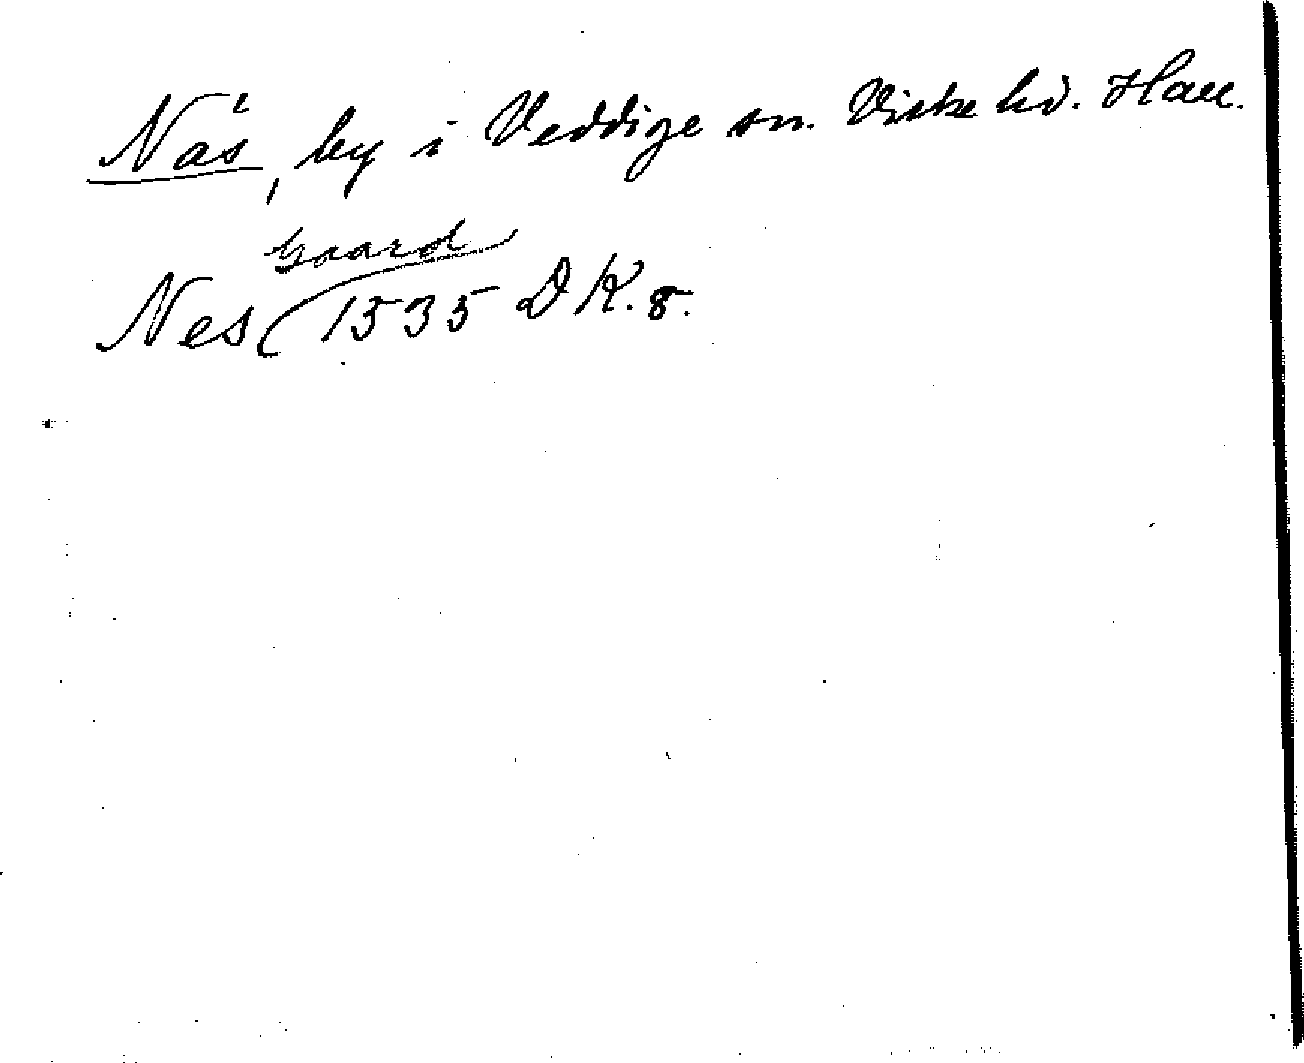 Näs, by i Veddige sn. Viske hd. Hall.
Gaard
Nes 1535 DK. 8.